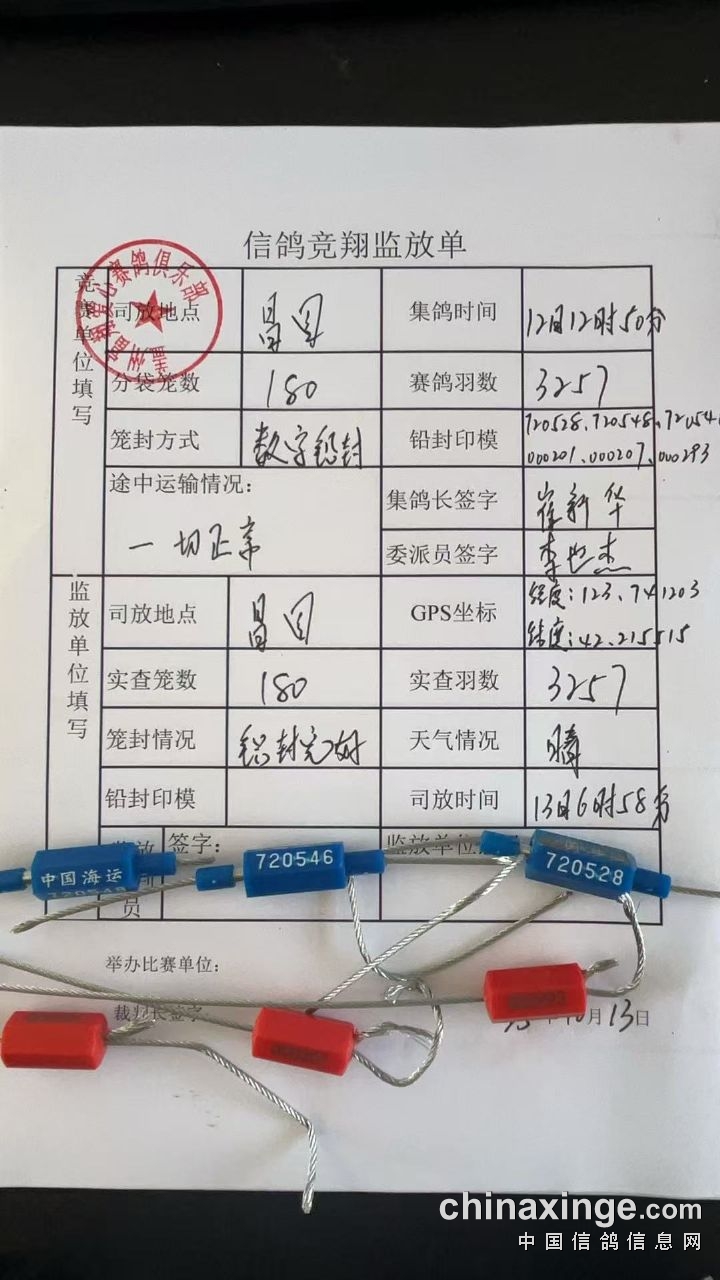 信鸽竞翔监放单
赛鸽俱乐部
竞赛单位填写
司放地点 昌图 集鸽时间 12日12时50分
分袋笼数 180 赛鸽羽数 3257
笼封方式 数字铅封 铅封印模 720528、720548、720546
000201、000207、000293
途中运输情况：
一切正常
集鸽长签字 崔新华
委派员签字
监放单位填写
司放地点 昌图 GPS坐标 经度：123.741203
纬度：42.215515
实查笼数 180 实查羽数 3257
笼封情况 铅封完好 天气情况 晴
铅封印模 司放时间 13日6时58分
签字： 监放单位
员
中国海运
720548
720546
720528
举办比赛单位：
裁判长签字
月13日
chinaxinge.com
中国信鸽信息网